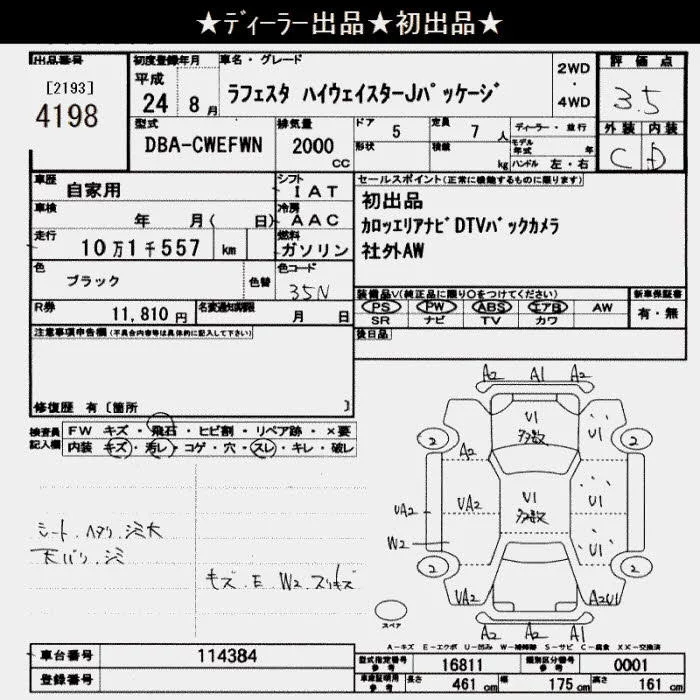 ★ディーラー出品★初出品★
出品番号
[2193]
4198
初度登録年月
平成
24 8 月
車名・グレード
ラフェスタ ハイウェイスターJパッケージ
2WD
・
4WD
評価点
3.5
外装 内装
C D
型式
DBA-CWEFWN
排気量
2000
CC
ドア
5
定員
7 人
形状
積載
kg
ディーラー・並行
モデル年式 年
ハンドル 左・右
車歴
自家用
シフト
I A T
セールスポイント(正常に機能するものに限ります)
初出品
カロッエリアナビDTVバックカメラ
社外AW
車検
年 月( 日)
冷房
A A C
走行
10万1千557 km
燃料
ガソリン
色
ブラック
色替
色コード
35N
装備品V(純正品に限り○をつけてください)
PS PW ABS エアB AW
SR ナビ TV カワ
新車保証書
有・無
R券
11,810 円
名変通知期限
月 日
後日品
注意事項申告欄(不具合内容等は具体的に記入して下さい)
修復歴 有〔箇所 〕
検査員
記入欄
FW キズ・飛石・ヒビ割・リペア跡・×要
内装 キズ・汚レ・コゲ・穴・スレ・キレ・破レ
シート.ヘタリ.シミ大
天バリ.シミ
キズ.E.W2.スリキズ
A2 A1 A2
U1
多数
A2
2 2
UA2
UA2
W2
U1
多数
U1
U1
2 2
UA2
A2U1
A2 A2 A1
スペア
A-キズ E-エクボ U-凹み W-補修跡 S-サビ C-腐食 XX-交換済
車台番号
114384
登録番号
型式指定番号
参考
16811
類別区分番号
参考
0001
車庫証明用
参考
長さ
461 cm
幅
175 cm
高さ
161 cm